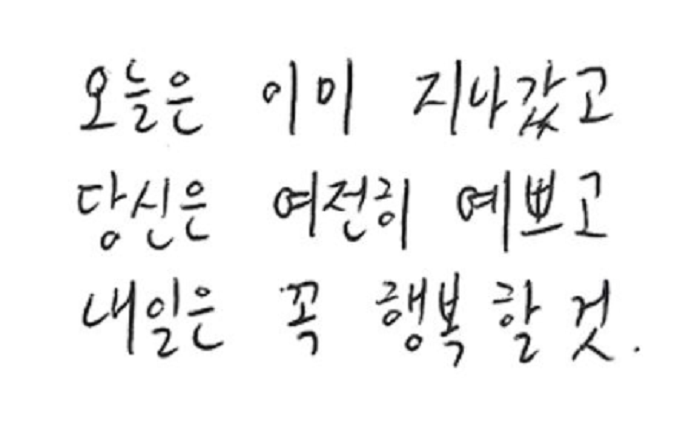 오늘은 이미 지나갔고
당신은 여전히 예쁘고
내일은 꼭 행복 할 것.